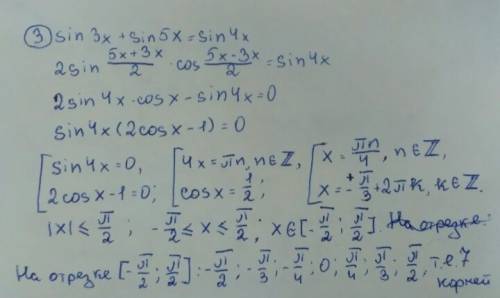 ③ sin 3x + sin 5x = sin 4x
2 sin (5x+3x)/2 · cos (5x-3x)/2 = sin 4x
2 sin 4x · cos x - sin 4x = 0
sin 4x (2 cos x - 1) = 0
[ sin 4x = 0, [ 4x = πn, n∈ℤ, [ x = πn/4, n∈ℤ,
2 cos x - 1 = 0; cos x = 1/2; x = ±π/3 + 2πk, k∈ℤ.
|x| ≤ π/2; -π/2 ≤ x ≤ π/2, x∈[-π/2; π/2]. На отрезке:
На отрезке [-π/2; π/2]: -π/2; -π/3; -π/4; 0; π/4; π/3; π/2, т.е. 7
корней